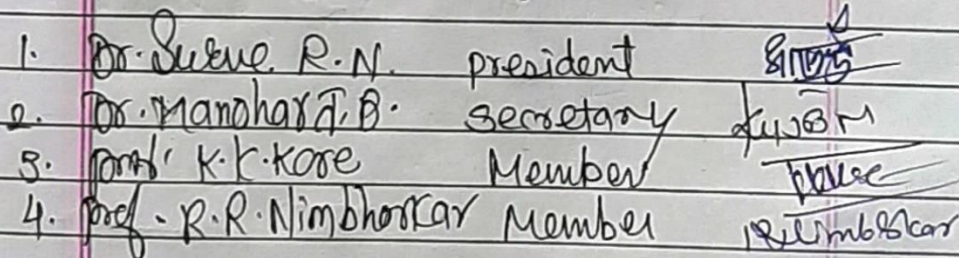 1. Dr. Surve R.N. president
2. Dr. Manohar J.B. Secretary
3. Prof. K.K. Kore Member
4. Prof. R.R. Nimbhorkar Member RRNimbhorkar